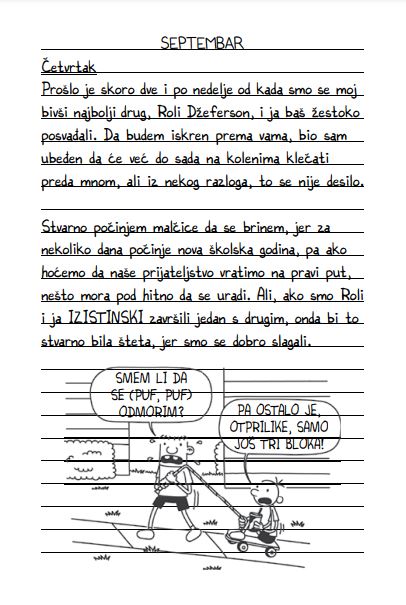 SEPTEMBAR
Četvrtak
Prošlo je skoro dve i po nedelje od kada smo se moj
bivši najbolji drug, Roli Džeferson, i ja baš žestoko
posvađali. Da budem iskren prema vama, bio sam
ubeđen da će već do sada na kolenima klečati
preda mnom, ali iz nekog razloga, to se nije desilo.
Stvarno počinjem malčice da se brinem, jer za
nekoliko dana počinje nova školska godina, pa ako
hoćemo da naše prijateljstvo vratimo na pravi put,
nešto mora pod hitno da se uradi. Ali, ako smo Roli
i ja IZISTINSKI završili jedan s drugim, onda bi to
stvarno bila šteta, jer smo se dobro slagali.
SMEM LI DA
SE (PUF, PUF)
ODMORIM?
PA OSTALO JE,
OTPRILIKE, SAMO
JOŠ TRI BLOKA!